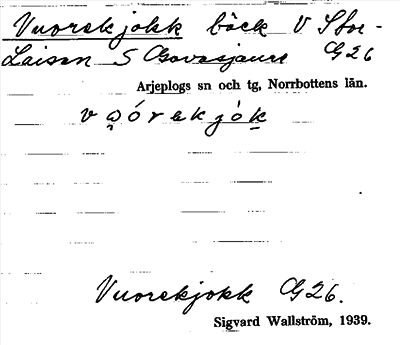 Vuorekjokk bäck V Stor-
Laisan S Gavasjaure G26
Arjeplogs sn och tg, Norrbottens län.
v ḁ ó r e k j ó k̲
Vuorekjokk G26.
Sigvard Wallström, 1939.